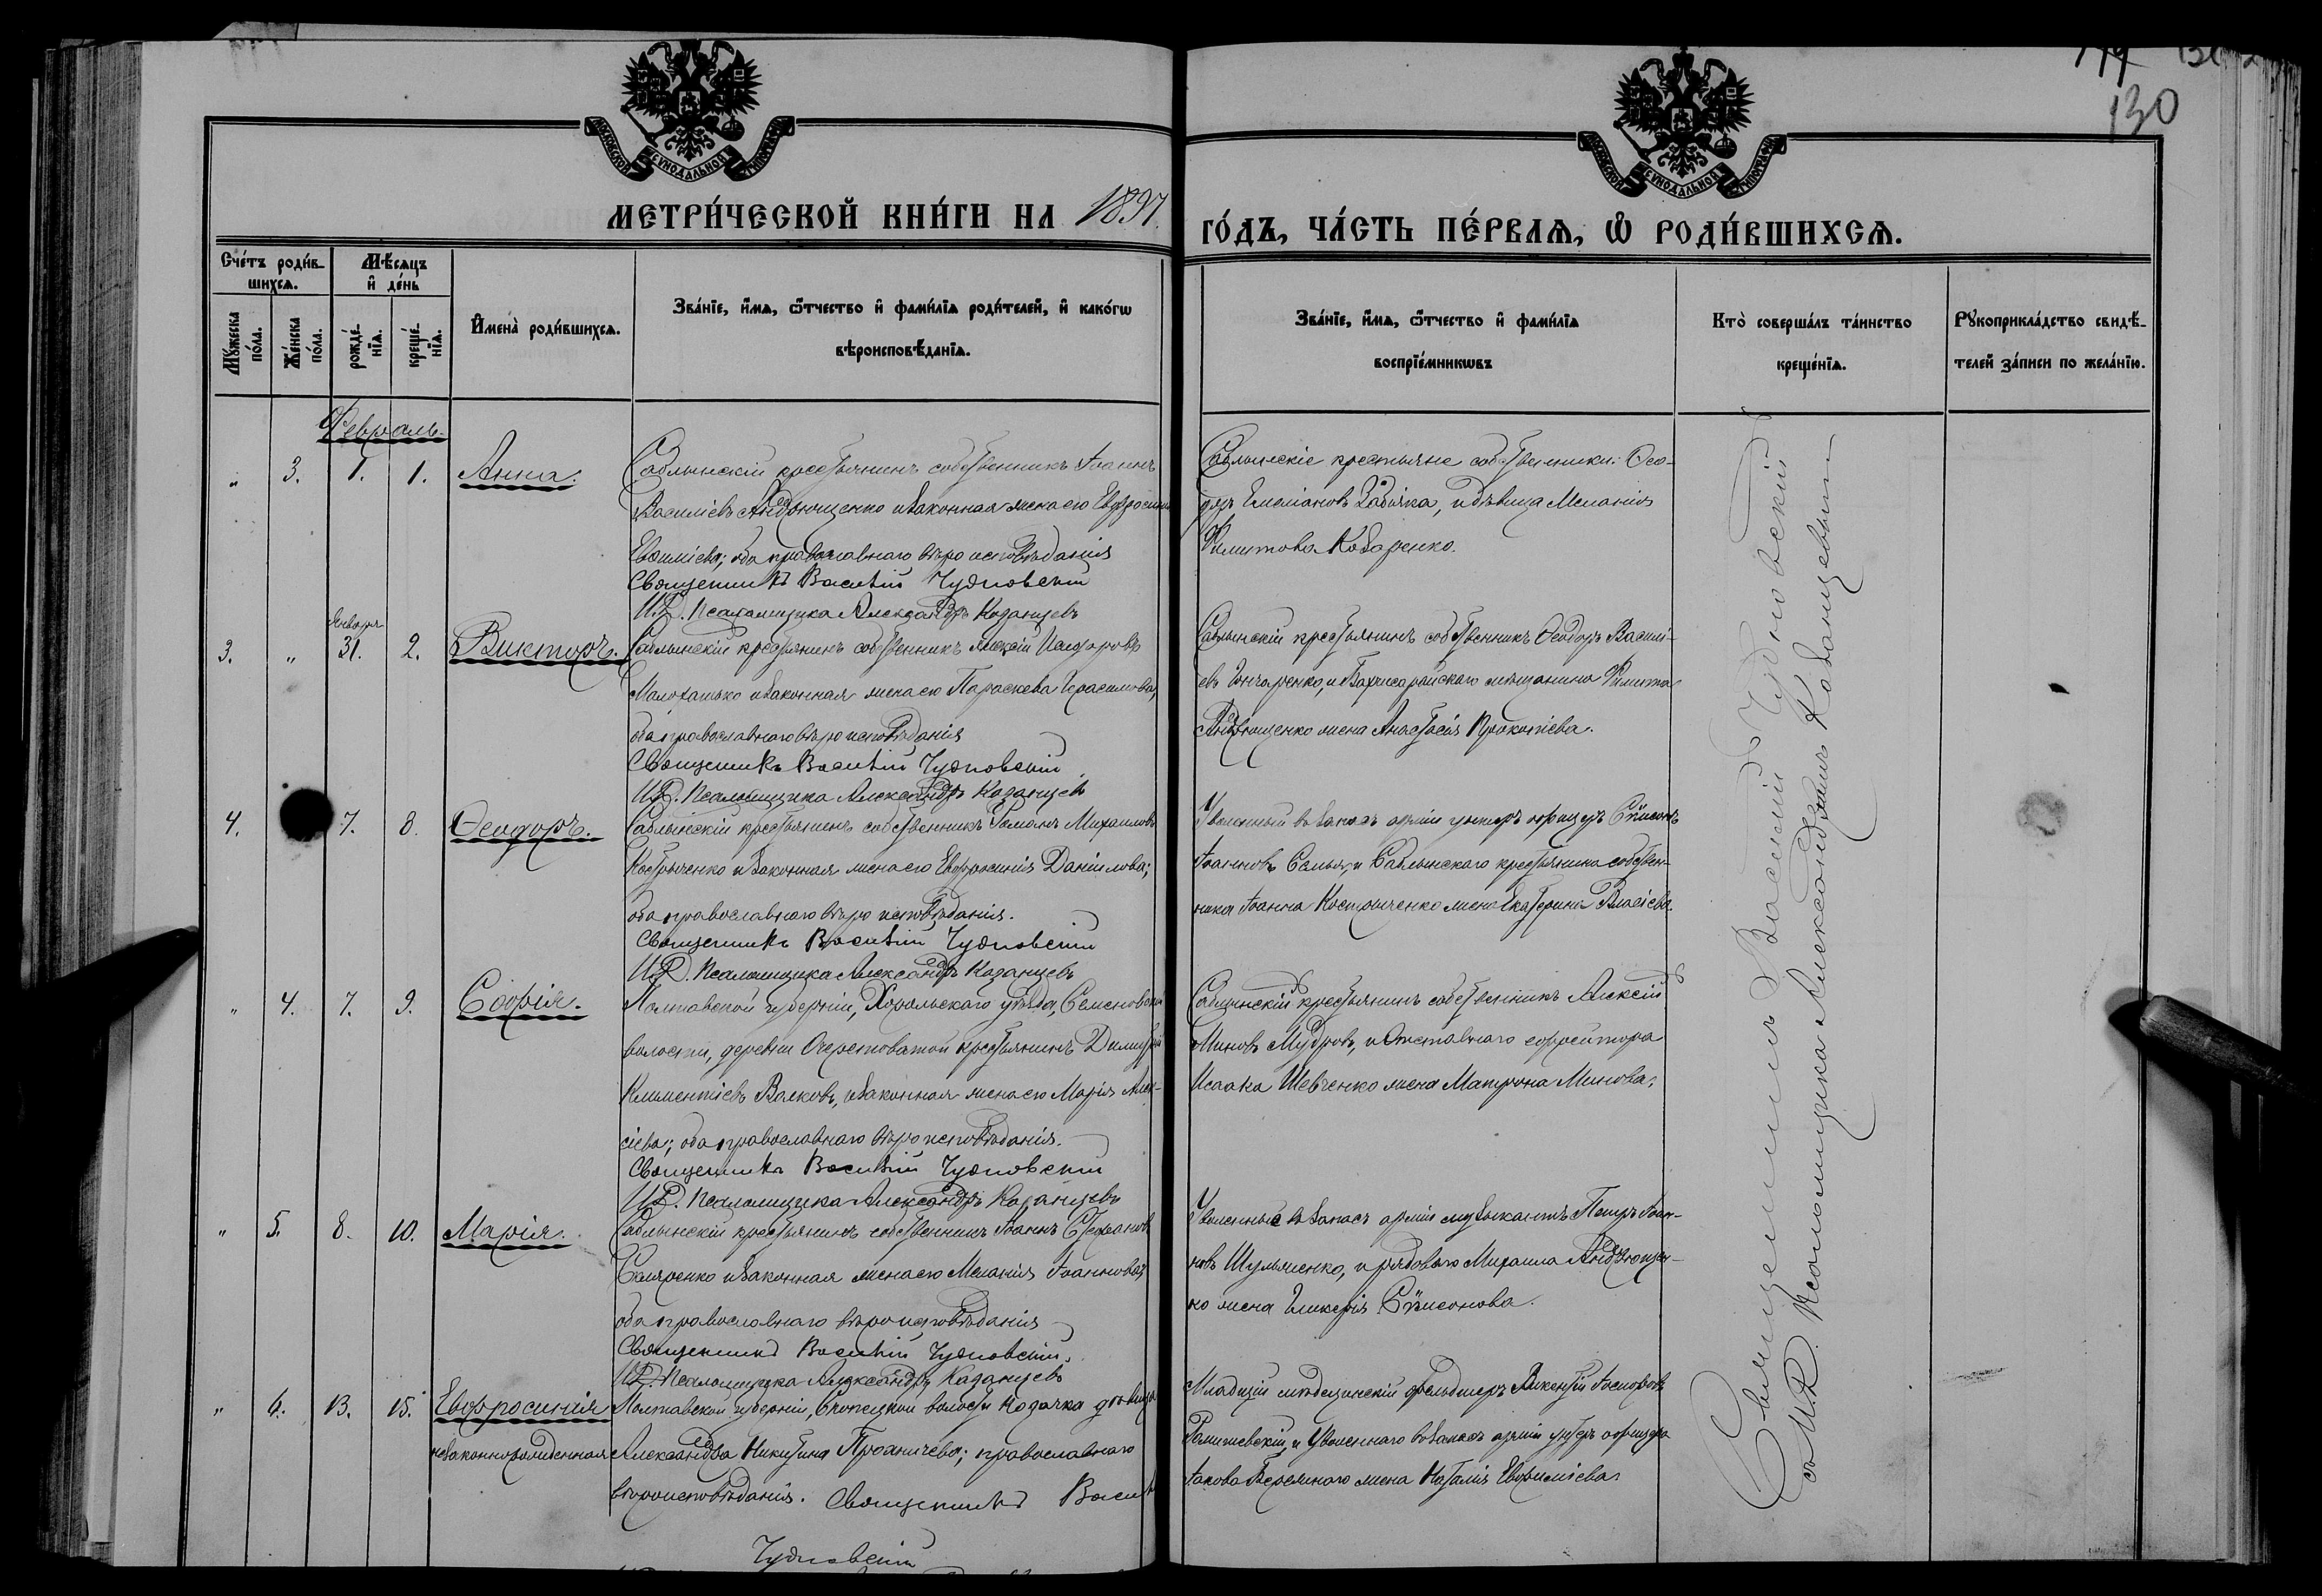 130
МОСКОВСКОЙ СѴНОДАЛЬНОЙ ТИПОГРАФІИ
МОСКОВСКОЙ СѴНОДАЛЬНОЙ ТИПОГРАФІИ
МЕТРИ́ЧЕСКОЙ КНИ́ГИ НА 1897
ГО́ДЪ, ЧА́СТЬ ПЕ́РВАѦ, Ѡ҆ РОДИ́ВШИХСѦ.
Сче́тъ роди́в-
шихсѧ.
Мѣ́сѧцъ
и҆ де́нь
Мꙋ́жеска
по́ла.
Же́нска
по́ла.
рожде́-
нїѧ.
креще́-
нїѧ.
И҆мена̀ роди́вшихсѧ.
Зва́нїе, и҆́мѧ, ѻ҆́тчество и҆ фами́лїѧ роди́телей, и҆ како́гѡ
вѣроисповѣ́данїѧ.
Зва́нїе, и҆́мѧ, ѻ҆́тчество и҆ фами́лїѧ
воспрїе́мникѡвъ
Кто̀ соверша́лъ та́инство
креще́нїѧ.
Рꙋкоприкла́дство свидѣ́-
телей за́писи по жела́нїю.
Февраль.
" 3. 1. 1. Анна.
Саблынскій крестьянинъ собственникъ Іоаннъ
Василіевъ Андрющенко и законная жена его Евфросинія
Евфиміева; оба православнаго вѣроисповѣданія
Священникъ Василій Чудновскій
И.Д. Псаломщика Александръ Казанцевъ
Саблынскіе крестьяне собственники: Ѳео-
доръ Емеліановъ Забіяка, и дѣвица Меланія
Филиппова Коваренко.
3. " Января 31. 2. Викторъ.
Саблынскій крестьянинъ собственникъ Алексій Исидоровъ
и законная жена его Параскева Герасимова,
оба православнаго вѣроисповѣданія
Священникъ Василій Чудновскій
И.Д. Псаломщика Александръ Казанцевъ
Саблынскій крестьянинъ собственникъ Ѳеодоръ Василі-
евъ Гончаренко, и Бахчисарайскаго мѣщанина Филиппа
Андрющенко жена Анастасія Прокопіева.
4. 7. 8. Ѳеодоръ.
Саблынскій крестьянинъ собственникъ Романъ Михаиловъ
Костыченко и законная жена его Евфросинія Даніилова;
оба православнаго вѣроисповѣданія.
Священникъ Василій Чудновскій
И.Д. Псаломщика Александръ Казанцевъ
Уволенный въ запасъ арміи унтеръ офицеръ Сѵмеонъ
Іоанновъ и Саблынскаго крестьянина собствен-
ника Іоанна Костыченко жена Екатерина Власіева.
" 4. 7. 9. Софія.
Полтавской губерніи, Хорольскаго уѣзда, Семеновской
волости, деревни Очеретоватой крестьянинъ Димитрій
Климентіевъ Волковъ, и законная жена его Марія Алек-
сіева; оба православнаго вѣроисповѣданія.
Священникъ Василій Чудновскій
И.Д. Псаломщика Александръ Казанцевъ
Саблынскій крестьянинъ собственникъ Алексій
Миновъ Мудровъ, и отставнаго ефрейтора
Исаака Шевченко жена Матрона Минова.
" 5. 8. 10. Марія.
Саблынскій крестьянинъ собственникъ Іоаннъ Стефановъ
Скляренко и законная жена его Меланія Іоаннова;
оба православнаго вѣроисповѣданія
Священникъ Василій Чудновскій.
И.Д. Псаломщика Александръ Казанцевъ
Уволенный въ запасъ арміи музыкантъ Петръ Іоан-
новъ Шульженко, и рядоваго Михаила Андрющен-
ко жена Гликерія Сѵмеонова.
" 6. 13. 15. Евфросинія
незаконнорожденная
Полтавской губерніи, волости козачка дѣвица
Александра Никитина православнаго
вѣроисповѣданія. Священникъ Василій
Чудновскій
Младшій медицинскій фельдшеръ Викентій
и уволеннаго въ запасъ арміи унтеръ офицера
Іакова жена Наталія Евфиміева.
Священникъ Василій Чудновскій
и И.Д. Псаломщика Александръ Казанцевъ